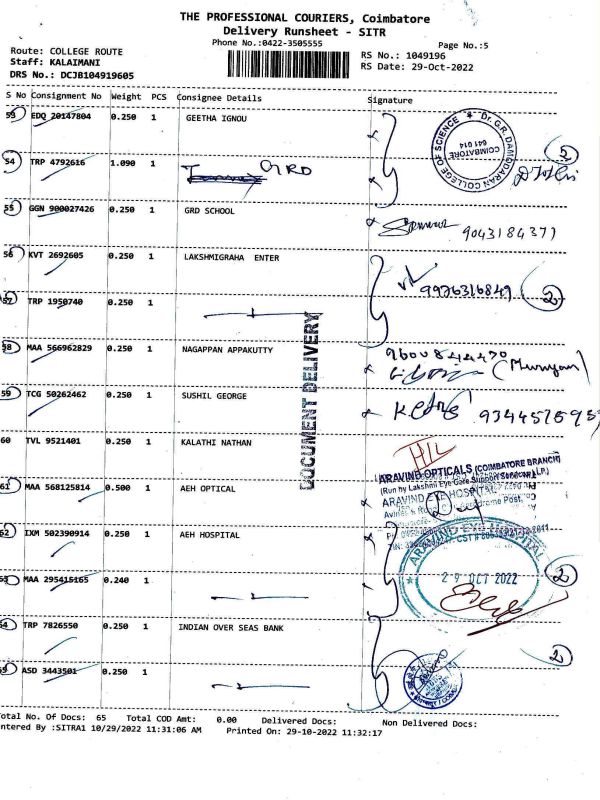 THE PROFESSIONAL COURIERS, Coimbatore
Delivery Runsheet - SITR
Phone No.:0422-3505555
Page No.:5
Route: COLLEGE ROUTE
RS No.: 1049196
Staff: KALAIMANI
RS Date: 29-Oct-2022
DRS No.: DCJB104919605
S No Consignment No Weight PCS Consignee Details Signature
53 EDQ 20147804 0.250 1 GEETHA IGNOU
Dr. G.R. DAMODARAN COLLEGE OF SCIENCE
COIMBATORE
641 014
2
54 TRP 4792616 1.090 1 GRD
55 GGN 900027426 0.250 1 GRD SCHOOL
9043184377
56 KVT 2692605 0.250 1 LAKSHMIGRAHA ENTER
9976316849 2
57 TRP 1950740 0.250 1
DOCUMENT DELIVERY
58 MAA 566962829 0.250 1 NAGAPPAN APPAKUTTY
9600844470
(Murugan)
59 TCG 50262462 0.250 1 SUSHIL GEORGE
60 TVL 9521401 0.250 1 KALATHI NATHAN
ARAVIND OPTICALS (COIMBATORE BRANCH)
(Run by Lakshmi Eye Care Support Services LLP.)
61 MAA 568125814 0.500 1 AEH OPTICAL
ARAVIND EYE HOSPITAL
62 IXM 502390914 0.250 1 AEH HOSPITAL
ARAVIND EYE HOSPITAL
29 OCT 2022
2
63 MAA 295415165 0.240 1
64 TRP 7826550 0.250 1 INDIAN OVER SEAS BANK
2
65 ASD 3443501 0.250 1
otal No. Of Docs: 65 Total COD Amt: 0.00 Delivered Docs: Non Delivered Docs:
ntered By :SITRA1 10/29/2022 11:31:06 AM Printed On: 29-10-2022 11:32:17